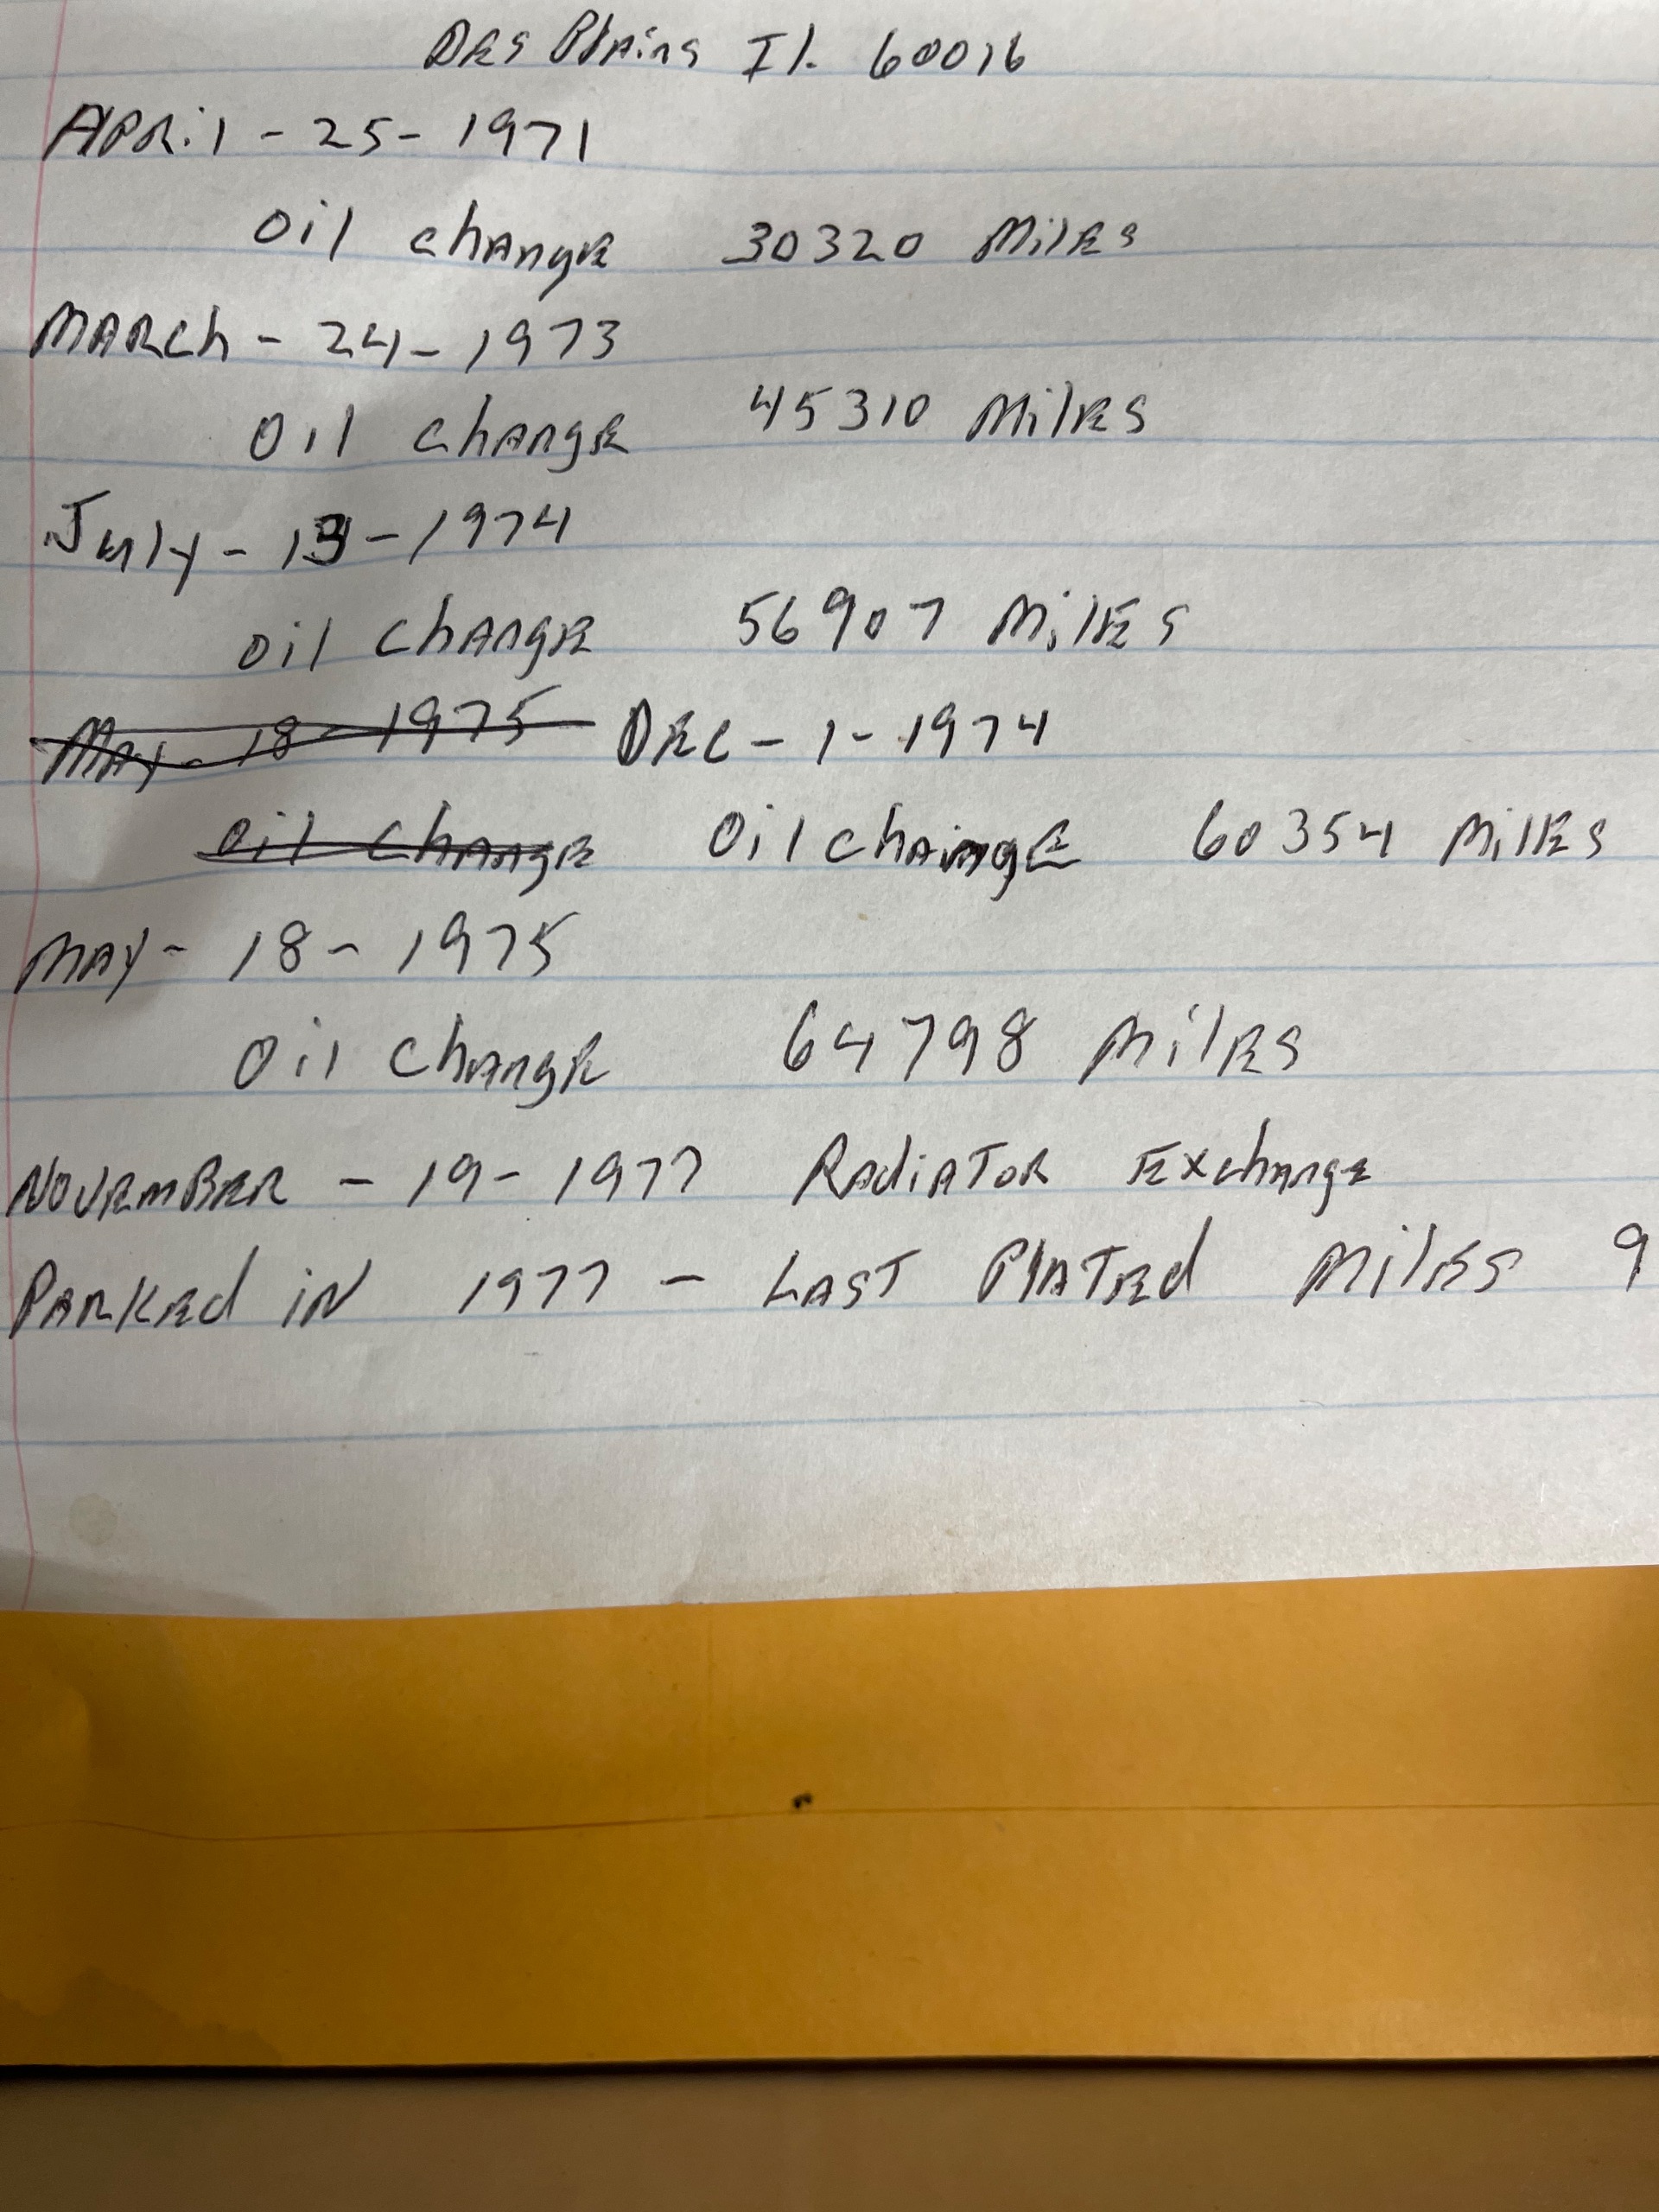 Des Plains Il. 60016
April - 25 - 1971
oil change 30320 Miles
March - 24 - 1973
oil change 45310 Miles
July - 13 - 1974
oil change 56907 Miles
May - 18 - 1975 Dec - 1 - 1974
oil change Oil chainge 60354 Miles
May - 18 - 1975
Oil change 64798 Miles
November - 19 - 1977 Radiator Exchange
Parked in 1977 - Last Plated Miles 9